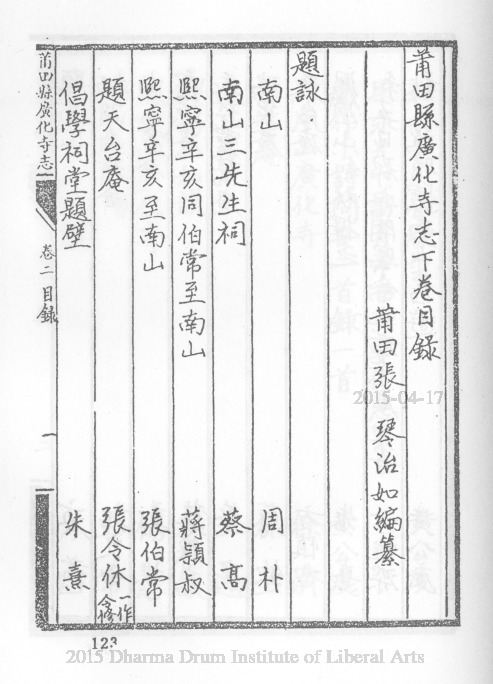 莆田縣廣化寺志下卷目錄
莆田張 琴治如編纂
題詠
南山 周朴
南山三先生祠 蔡高
熙寧辛亥同伯常至南山 蔣穎叔
熙寧辛亥至南山 張伯常
題天台庵 張令休一作令修
倡學祠堂題壁 朱熹
莆田縣廣化寺志 卷二 目錄 一
123
2015-04-17
2015 Dharma Drum Institute of Liberal Arts